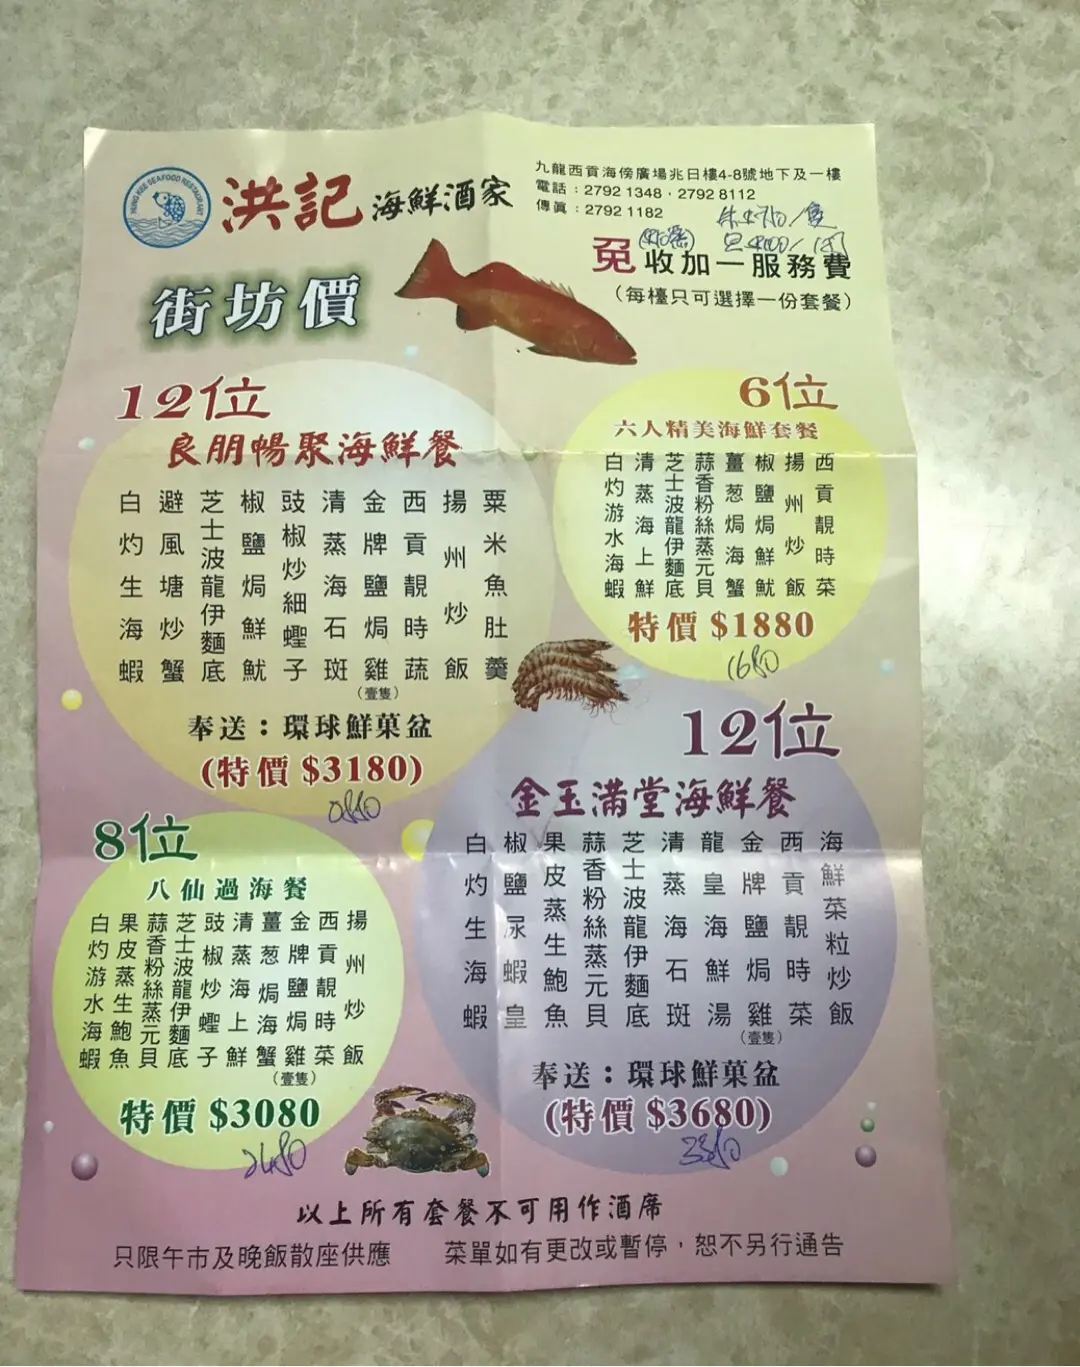 HUNG KEE SEAFOOD RESTAURANT
洪記海鮮酒家
九龍西貢海傍廣場兆日樓4-8號地下及一樓
電話：2792 1348．2792 8112
傳真：2792 1182
免收加一服務費
（每檯只可選擇一份套餐）
街坊價
12位
良朋暢聚海鮮餐
白灼生海蝦
避風塘炒蟹
芝士波龍伊麵底
椒鹽焗鮮魷
豉椒炒細蟶子
清蒸海石斑
金牌鹽焗雞（壹隻）
西貢靚時蔬
揚州炒飯
粟米魚肚羹
奉送：環球鮮菓盆
(特價 $3180)
6位
六人精美海鮮套餐
白灼游水海蝦
清蒸海上鮮
芝士波龍伊麵底
蒜香粉絲蒸元貝
薑葱焗海蟹
椒鹽焗鮮魷
揚州炒飯
西貢靚時菜
特價 $1880
1680
8位
八仙過海餐
白灼游水海蝦
果皮蒸生鮑魚
蒜香粉絲蒸元貝
芝士波龍伊麵底
豉椒炒蟶子
清蒸海上鮮
薑葱焗海蟹
金牌鹽焗雞（壹隻）
西貢靚時菜
揚州炒飯
特價 $3080
2480
12位
金玉滿堂海鮮餐
白灼生海蝦
椒鹽尿蝦皇
果皮蒸生鮑魚
蒜香粉絲蒸元貝
芝士波龍伊麵底
清蒸海石斑
龍皇海鮮湯
金牌鹽焗雞（壹隻）
西貢靚時菜
海鮮菜粒炒飯
奉送：環球鮮菓盆
(特價 $3680)
以上所有套餐不可用作酒席
只限午市及晚飯散座供應
菜單如有更改或暫停，恕不另行通告